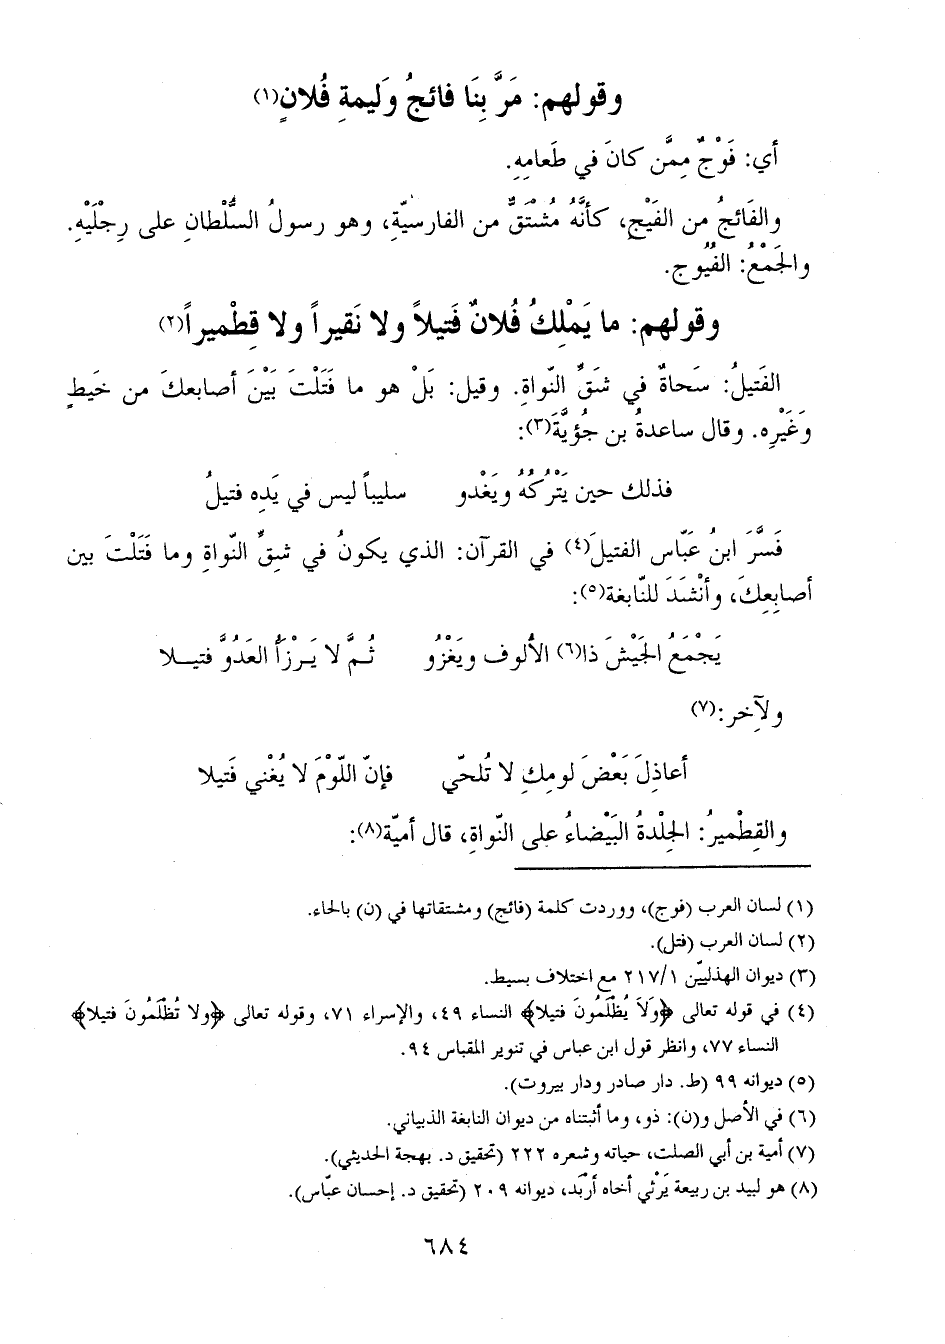 وقولهم: مَرَّ بِنَا فائجُ وَليمةِ فُلانٍ(١)
أي: فَوْجٌ مِمَّن كانَ في طَعامِهِ.
والفَائجُ من الفَيْجِ، كأنَّهُ مُشْتَقٌّ من الفارسيّةِ، وهو رسولُ السُّلْطانِ على رِجْلَيْهِ.
والجَمْعُ: الفُيُوج.
وقولهم: ما يَمْلِكُ فُلانٌ فَتيلاً ولا نَقيراً ولا قِطْميراً(٢)
الفَتيلُ: سَحاةٌ في شَقِّ النّواةِ. وقيل: بَلْ هو ما فَتَلْتَ بَيْنَ أصابعكَ من خَيطٍ
وَغَيْرِه. وقال ساعدةُ بن جُؤيَّةَ(٣):
فذلك حين يَتْرُكُهُ ويَغْدو سليباً ليس في يَدِه فتيلُ
فَسَّرَ ابنُ عَبّاس الفتيلَ(٤) في القرآن: الذي يكونُ في شِقِّ النّواةِ وما فَتَلْتَ بين
أصابِعِكَ، وأنْشَدَ للنّابغة(٥):
يَجْمَعُ الجَيْشَ ذا(٦) الألُوف ويَغْزُو ثُمَّ لا يَرْزَأُ العَدُوَّ فتيـلا
ولآخر:(٧)
أعاذِلَ بَعْضَ لومِكِ لا تُلحّي فإنّ اللّوْمَ لا يُغْني فَتيلا
والقِطْميرُ: الجِلْدةُ البَيْضاءُ على النّواةِ، قال أميّة(٨):
(١) لسان العرب (فوج)، ووردت كلمة (فائج) ومشتقاتها في (ن) بالحاء.
(٢) لسان العرب (فتل).
(٣) ديوان الهذليّين ٢١٧/١ مع اختلاف بسيط.
(٤) في قوله تعالى ﴿وَلَا يُظْلَمُونَ فتيلا﴾ النساء ٤٩، والإسراء ٧١، وقوله تعالى ﴿ولا تُظْلَمُونَ فتيلا﴾
النساء ٧٧، وانظر قول ابن عباس في تنوير المقباس ٩٤.
(٥) ديوانه ٩٩ (ط. دار صادر ودار بيروت).
(٦) في الأصل و(ن): ذو، وما أثبتناه من ديوان النابغة الذبياني.
(٧) أمية بن أبي الصلت، حياته وشعره ٢٢٢ (تحقيق د. بهجة الحديثي).
(٨) هو لبيد بن ربيعة يَرْثي أخاه أَرْبَد، ديوانه ٢٠٩ (تحقيق د. إحسان عبّاس).
٦٨٤